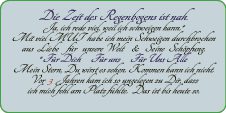 Die Zeit des Regenbogens ist nah.
Ja, ich rede viel, weil ich schweigen kann."
Mit viel MUT habe ich mein Schweigen durchbrochen
aus Liebe für unsere Welt & Seine Schöpfung.
"Für Dich Für uns Für Uns Alle
Mein Stern, Du wirst es sehen. Kommen kann ich nicht.
Vor 3 Jahren kam ich so ungelegen zu Dir, dass
ich mich fehl am Platz fühlte. Das ist bis heute so.